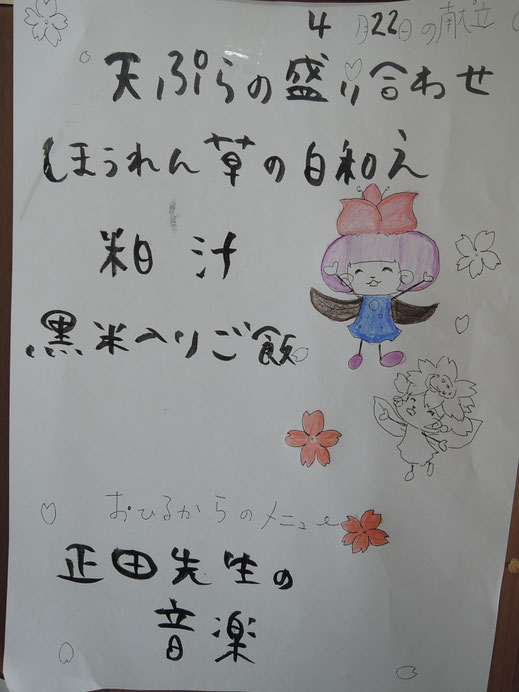 4月22日の献立
天ぷらの盛り合わせ
ほうれん草の白和え
粕汁
黒米入りご飯
おひるからのメニュー
正田先生の
音楽